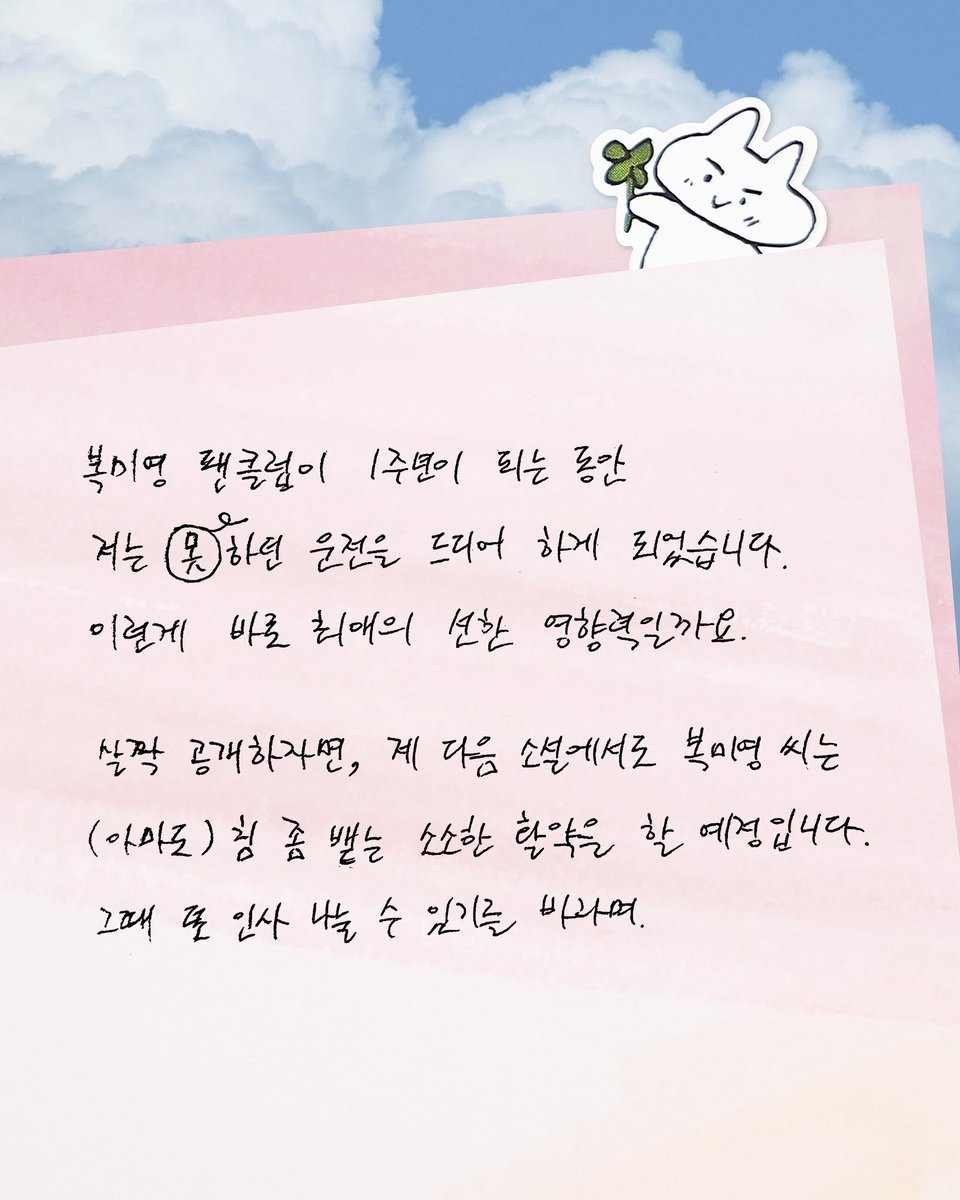 복미영 팬클럽이 1주년이 되는 동안
저는 못하던 운전을 드디어 하게 되었습니다.
이런게 바로 최애의 선한 영향력일까요.
살짝 공개하자면, 제 다음 소설에서도 복미영 씨는
(아마도) 침 좀 뱉는 소소한 활약을 할 예정입니다.
그때 또 인사 나눌 수 있기를 바라며.